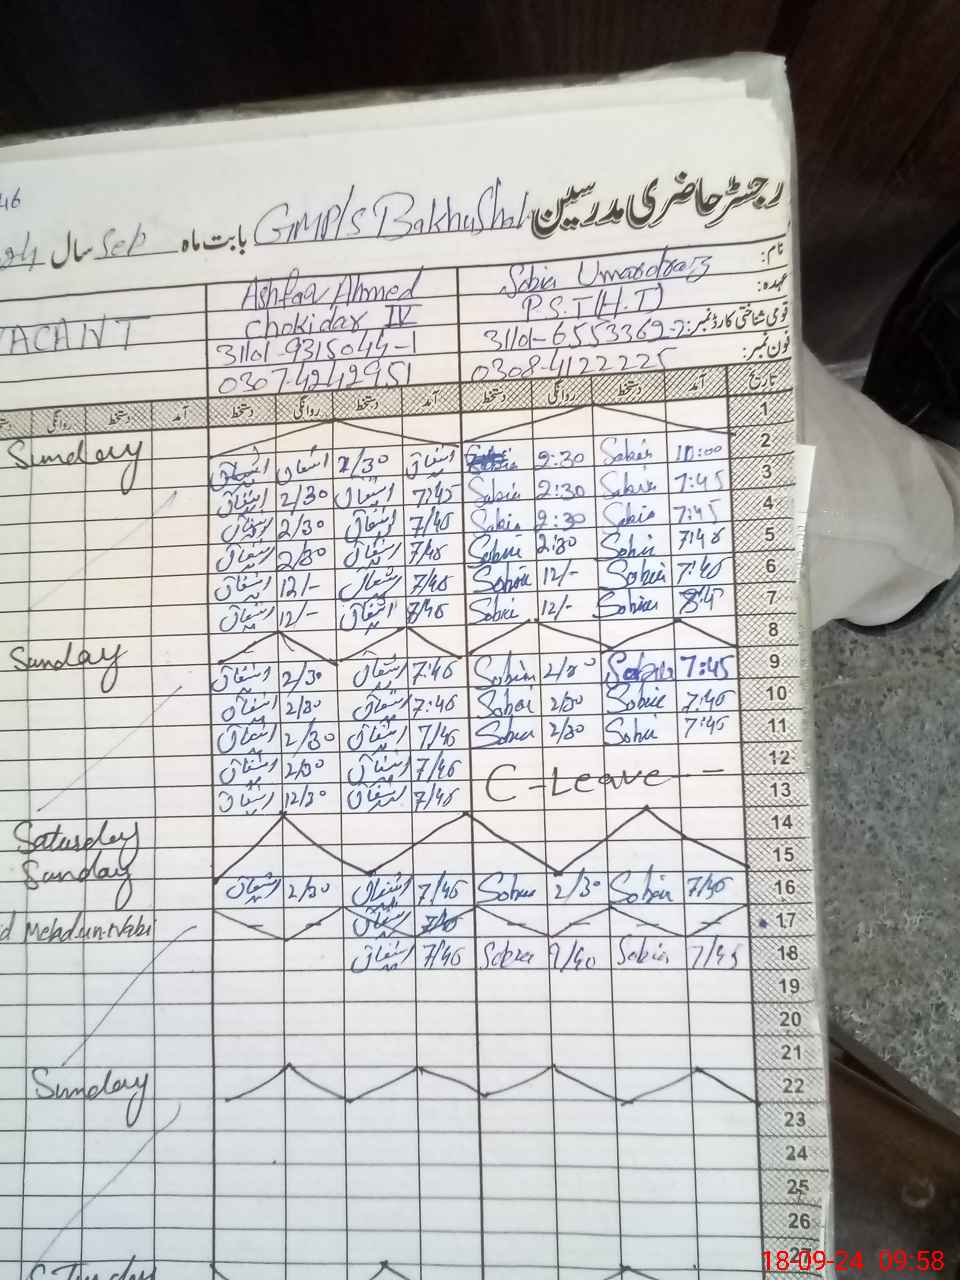 46
رجسٹر حاضری مدرسین
24 سال Sep بابت ماہ GMP/S Bakhu Shah
نام: Sobia Umardraz Ashfaq Ahmed
عہدہ: P.S.T (H.T) Chokidar IV VACANT
قومی شناختی کارڈ نمبر: 31101-9315044-1
فون نمبر: 0308-4122225 0307-4242951
تاریخ آمد دستخط روانگی دستخط آمد دستخط روانگی دستخط آمد دستخط روانگی
1 Sunday
2 10:00 Sobia 2:30 اشفاق اشفاق اشفاق
3 7:45 Sobia 2:30 Sobia 7:45 اشفاق 2/30 اشفاق
4 7:45 Sobia 2:30 Sobia 7/45 اشفاق 2/30 اشفاق
5 7:45 Sobia 2:30 Sobia 7/45 اشفاق 2/30 اشفاق
6 7:45 Sobia 12/- Sobia 7/45 اشفاق 12/- اشفاق
7 Sobia 12/- Sobia 7/45 اشفاق 12/- اشفاق
8 Sunday
9 7:45 Sobia 2/30 Sobia 7:45 اشفاق 2/30 اشفاق
10 7:45 Sobia 2/30 Sobia 7:45 اشفاق 2/30 اشفاق
11 7:45 Sobia 2/30 Sobia 7/45 اشفاق 2/30 اشفاق
12 7/45 اشفاق 2/30 اشفاق
C-Leave--
13 7/45 اشفاق 12/30 اشفاق
14 Saturday
15 Sunday
16 7/45 Sobia 2/30 Sobia 7/45 اشفاق 2/30 اشفاق
17 7/45 اشفاق
18 7/45 Sobia 9/40 Sobia 7/45 اشفاق
19
20
21
22 Sunday
23
24
25
26
27
18-09-24 09:58